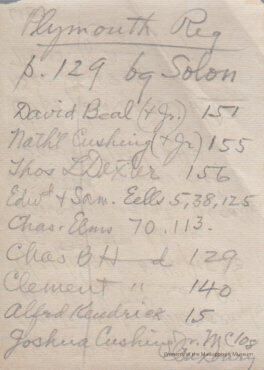 Plymouth Reg
p. 129 by Solon
David Beal (+ Jr.) 151
Nath'l Cushing (+ Jr) 155
Thos L Dexter 156
Edwd + Sam. Eells 5, 38, 125
Chas. Elms 70. 113.
Chas B H d 129
Clement " 140
Alfred Kendrick 15
Joshua Cushing Jr. Mc108
Duxbury
Property of the Mattapoisett Museum